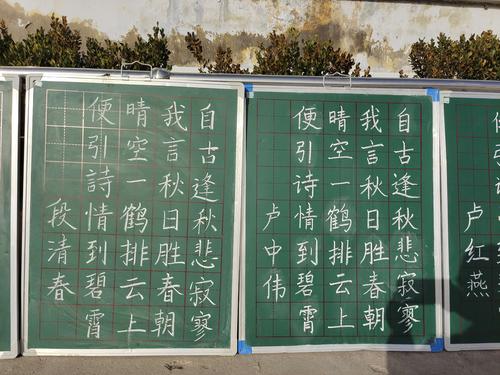 自古逢秋悲寂寥
我言秋日胜春朝
晴空一鹤排云上
便引詩情到碧霄
段清春
自古逢秋悲寂寥
我言秋日胜春朝
晴空一鹤排云上
便引诗情到碧霄
卢中伟
卢红燕